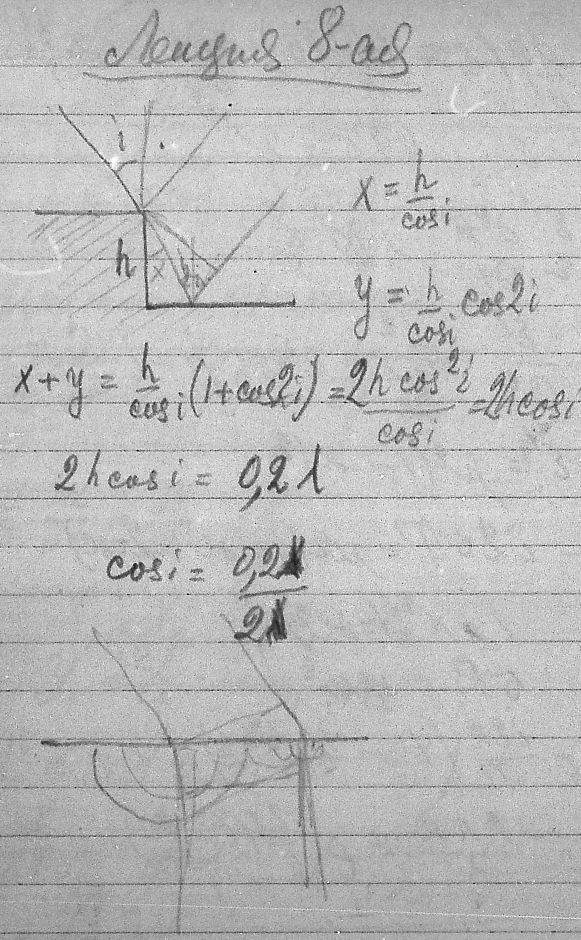 Лекция 8-ая
i
h
x
2i
x = h/cosi
y = h/cosi cos2i
x + y = h/cosi (1+cos2i) = 2h cos²i/cosi = 2hcosi
2hcosi = 0,2λ
cosi = 0,2λ/2λ